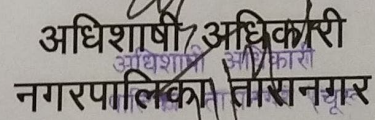 अधिशाषी अधिकारी
अधिशाषी अधिकारी
नगरपालिका तारानगर